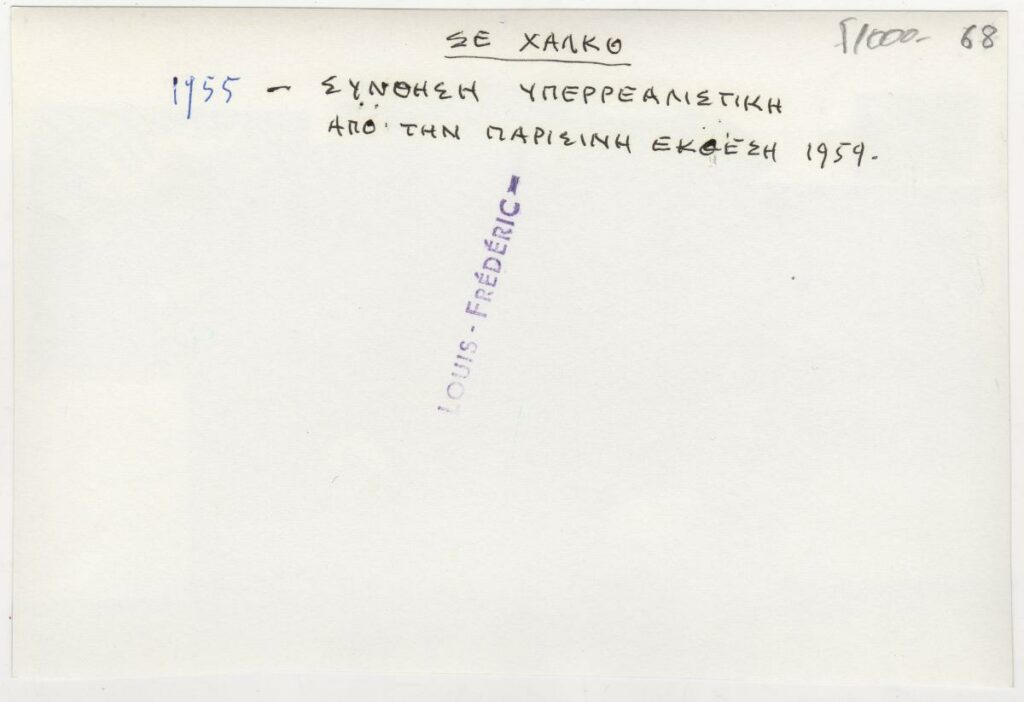 ΣΕ ΧΑΛΚΟ
68
1955 - ΣΥΝΘΗΣΗ ΥΠΕΡΡΕΑΛΙΣΤΙΚΗ
ΑΠΟ ΤΗΝ ΠΑΡΙΣΙΝΗ ΕΚΘΕΣΗ 1959.
LOUIS - FRÉDÉRIC